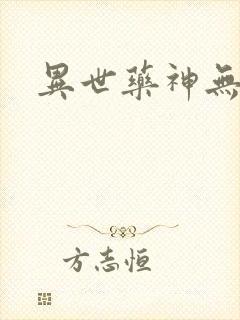 異世藥神無
方志恒